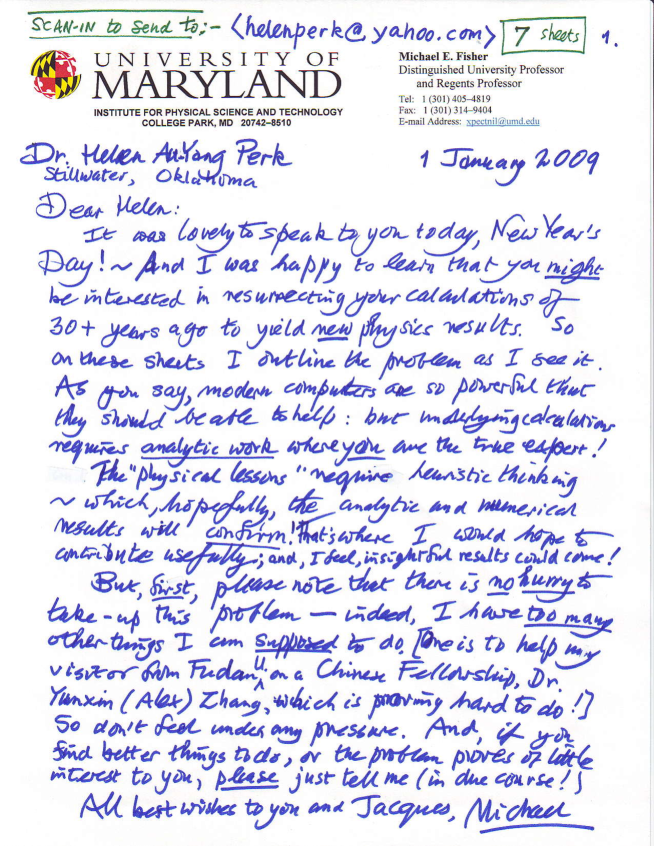 SCAN-IN to Send to;- <helenperk@yahoo.com> 7 sheets 1.
UNIVERSITY OF
MARYLAND
INSTITUTE FOR PHYSICAL SCIENCE AND TECHNOLOGY
COLLEGE PARK, MD 20742–8510
Michael E. Fisher
Distinguished University Professor
and Regents Professor
Tel: 1 (301) 405–4819
Fax: 1 (301) 314–9404
E-mail Address: xpectnil@umd.edu
Dr. Helen Au-Yang Perk
Stillwater, Oklahoma
1 January 2009
Dear Helen:
It was lovely to speak to you today, New Year's
Day! ~ And I was happy to learn that you might
be interested in resurrecting your calculations of
30+ years ago to yield new physics results. So
on these sheets I outline the problem as I see it.
As you say, modern computers are so powerful that
they should be able to help: but underlying calculations
requires analytic work where you are the true expert!
The "physical lessons" require heuristic thinking
~ which, hopefully, the analytic and numerical
results will confirm! That's where I would hope to
contribute usefully; and, I feel, insightful results could come!
But, first, please note that there is no hurry to
take-up this problem — indeed, I have too many
other things I am supposed to do [one is to help my
visitor from Fudan U, on a Chinese Fellowship, Dr.
Yunxin (Alex) Zhang, which is proving hard to do!]
So don't feel under any pressure. And, if you
find better things to do, or the problem proves of little
interest to you, please just tell me (in due course!)
All best wishes to you and Jacques, Michael